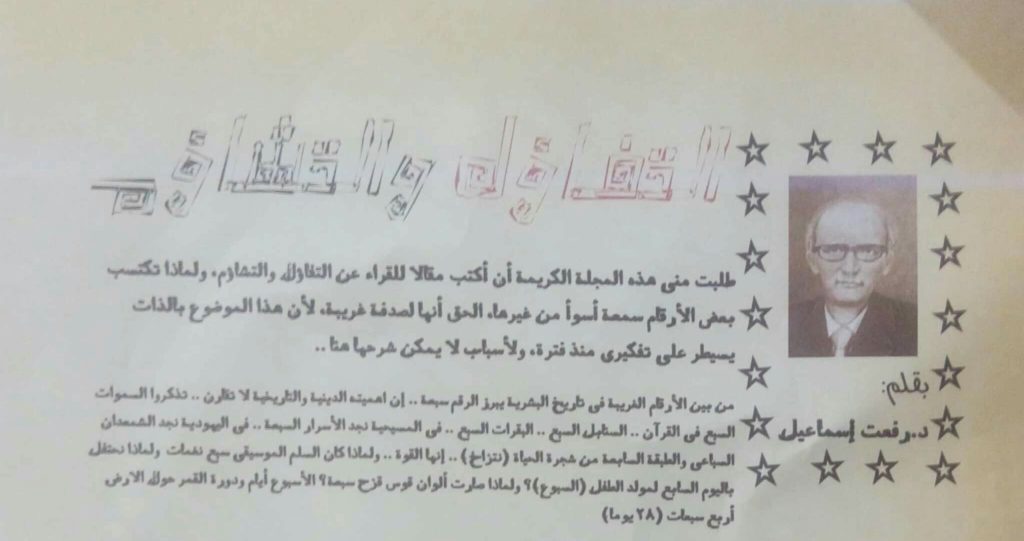 التفاؤل والتشاؤم
طلبت منى هذه المجلة الكريمة أن أكتب مقالا للقراء عن التفاؤل والتشاؤم، ولماذا تكتسب
بعض الأرقام سمعة أسوأ من غيرها، الحق أنها لصدفة غريبة، لأن هذا الموضوع بالذات
يسيطر على تفكيرى منذ فترة، ولأسباب لا يمكن شرحها هنا ..
بقلم:
د.رفعت إسماعيل
من بين الأرقام الغريبة فى تاريخ البشرية يبرز الرقم سبعة .. إن اهميته الدينية والتاريخية لا تقارن .. تذكروا السموات
السبع فى القرآن .. السنابل السبع .. البقرات السبع .. فى المسيحية نجد الأسرار السبعة .. فى اليهودية نجد الشمعدان
السباعى والطبقة السابعة من شجرة الحياة (نتزاخ) .. إنها القوة .. ولماذا كان السلم الموسيقى سبع نغمات ولماذا نحتفل
باليوم السابع لمولد الطفل (السبوع)؟ ولماذا صارت ألوان قوس قزح سبعة؟ الأسبوع أيام ودورة القمر حول الارض
أربع سبعات (٢٨ يوما)